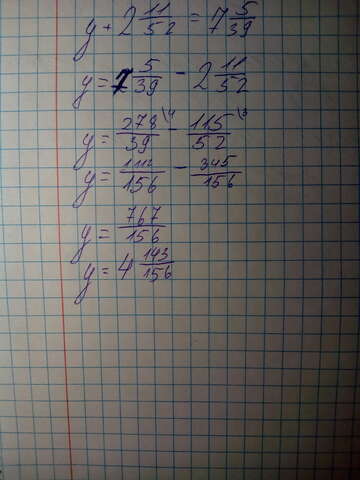 y + 2 11/52 = 7 5/39
y = 7 5/39 - 2 11/52
y = 278/39 \4 - 115/52 \3
y = 1112/156 - 345/156
y = 767/156
y = 4 143/156